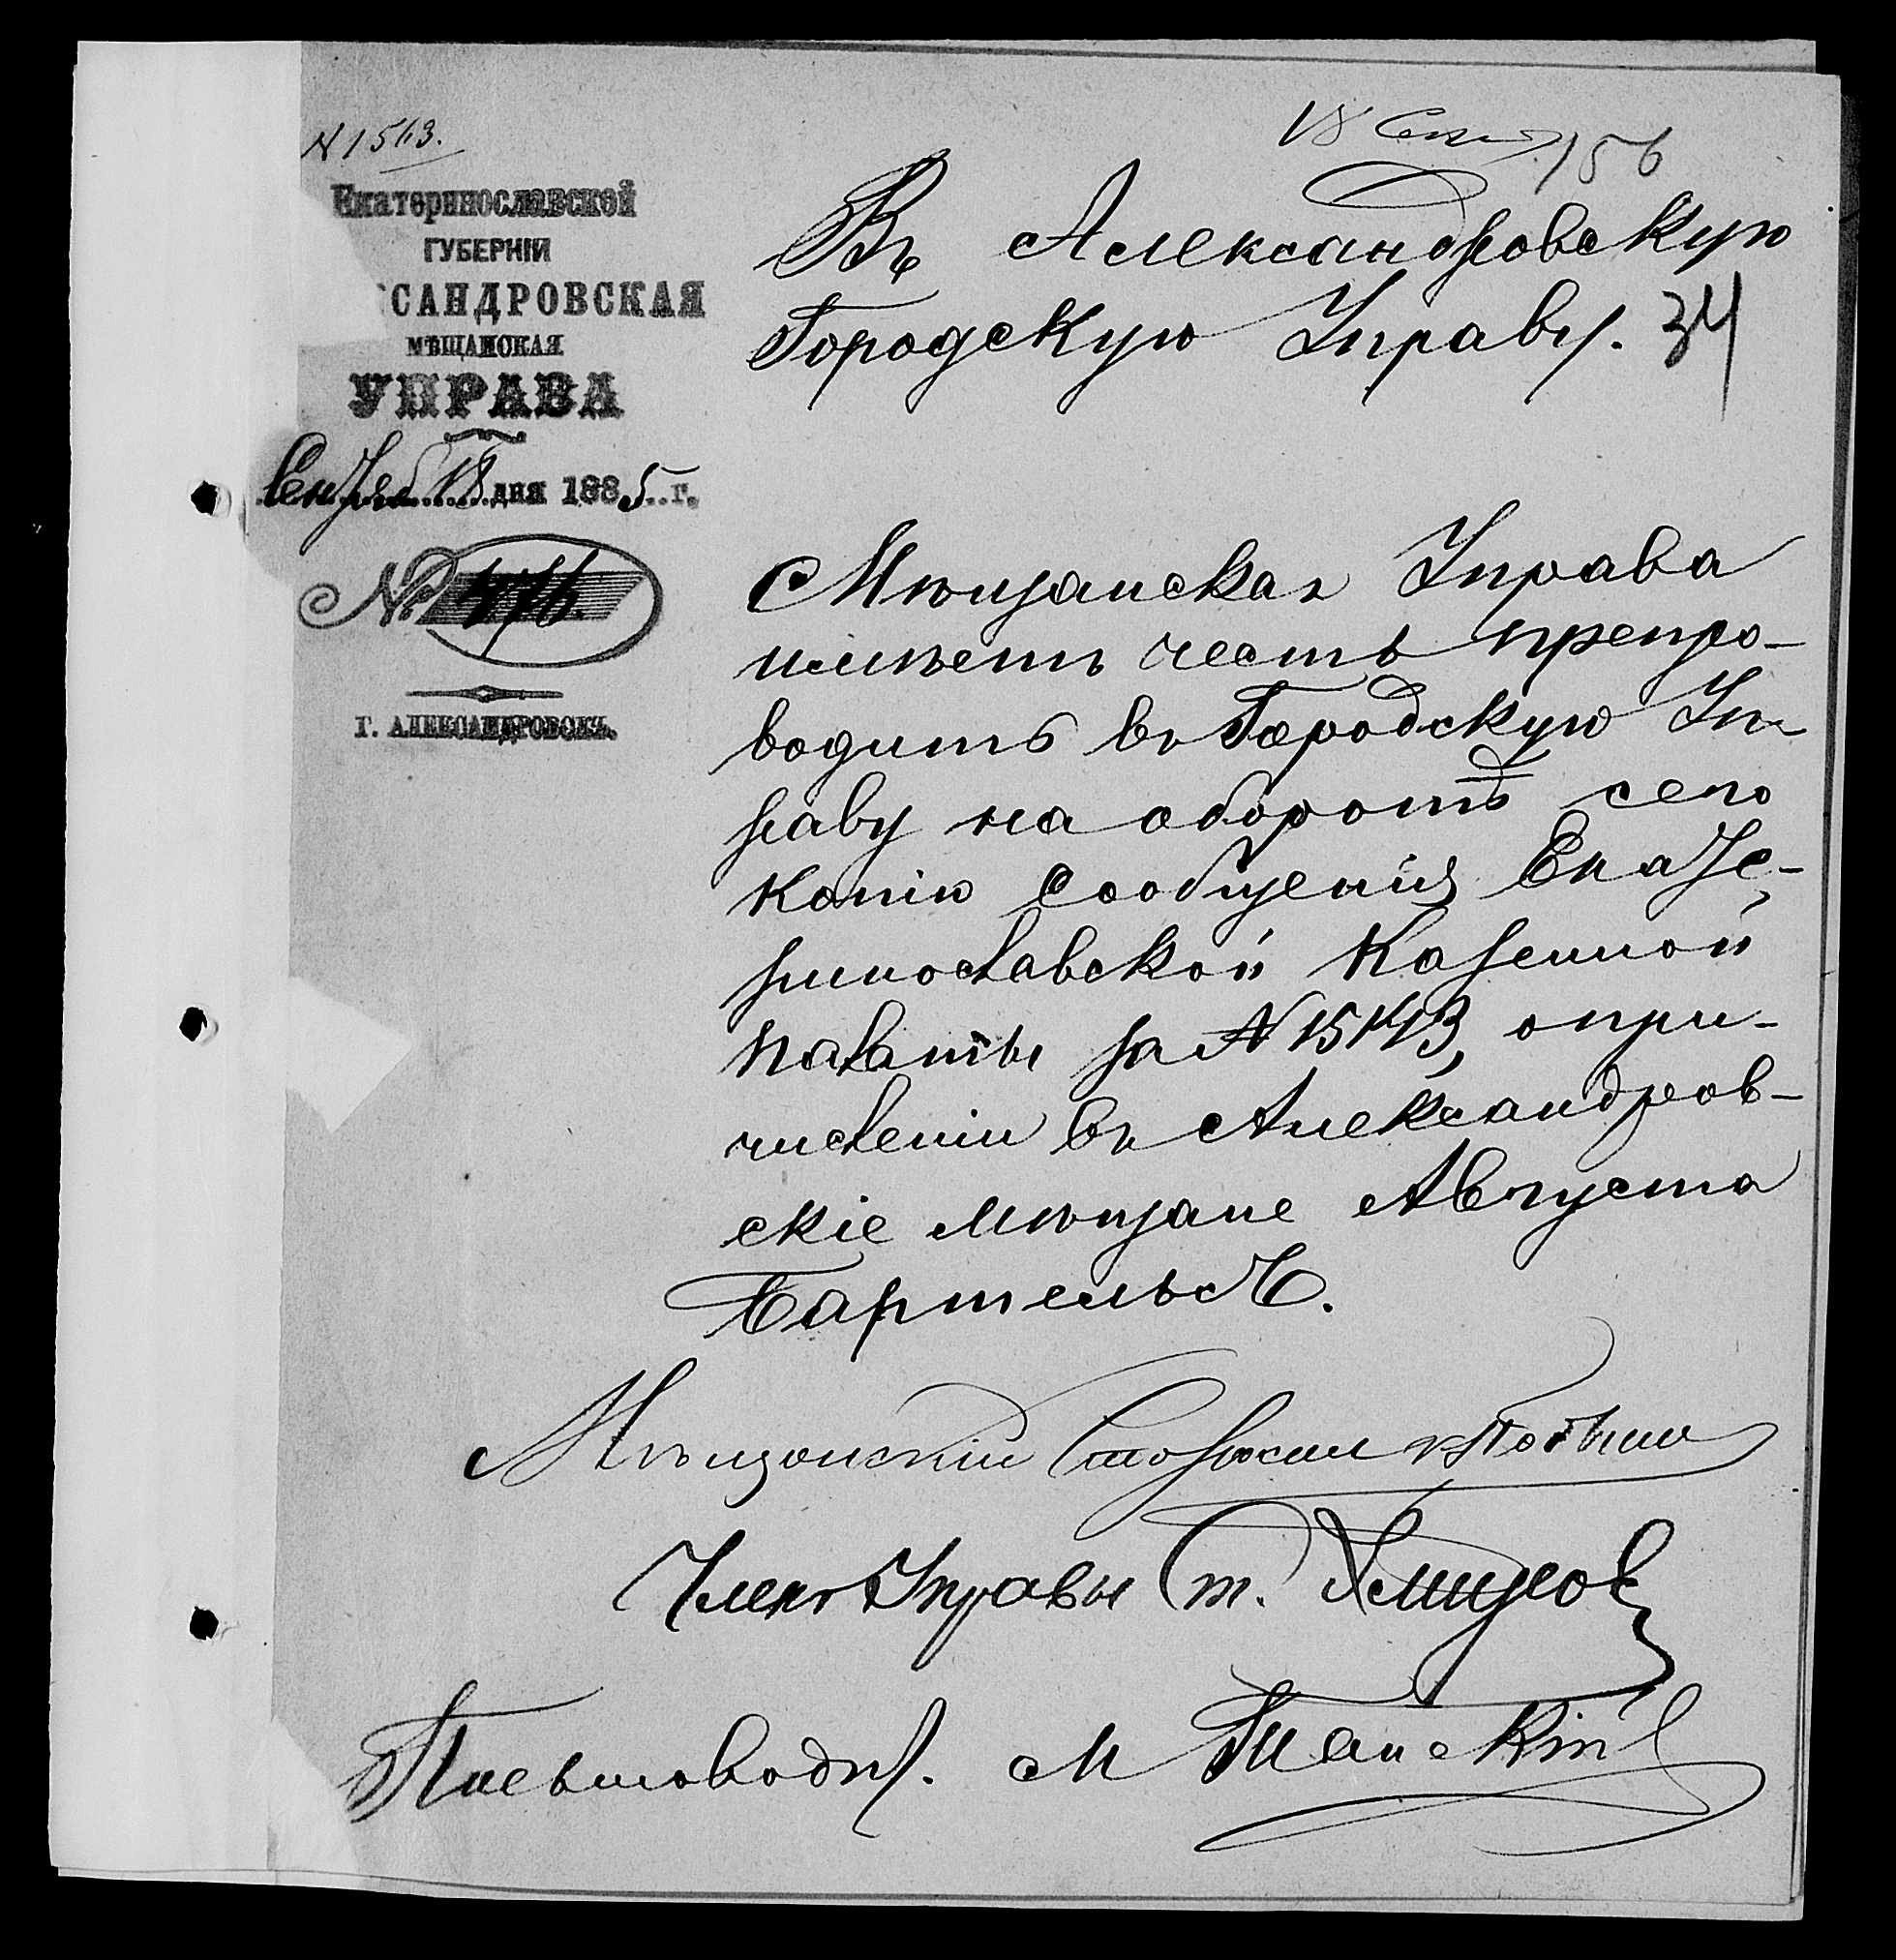 N 1543.
18 Сент. 156
Екатеринославской
ГУБЕРНІИ
САНДРОВСКАЯ
МѢЩАНСКАЯ
УПРАВА
Сентяб 18 дня 1885 г.
№ 476.
Г. АЛЕКСАНДРОВСКЪ.
Въ Александровскую
Городскую Управу. 34
Мѣщанская Управа
имѣетъ честь препро-
водить въ Городскую Уп-
раву на оборотѣ сего
копію сообщенія Екате-
ринославской Казенной
палаты за N 1543, о при-
численіи въ Александров-
скіе мѣщане Августа
Бартельсъ.
Мѣщанскій Староста
Членъ Управы Ст.
Письмовод. М